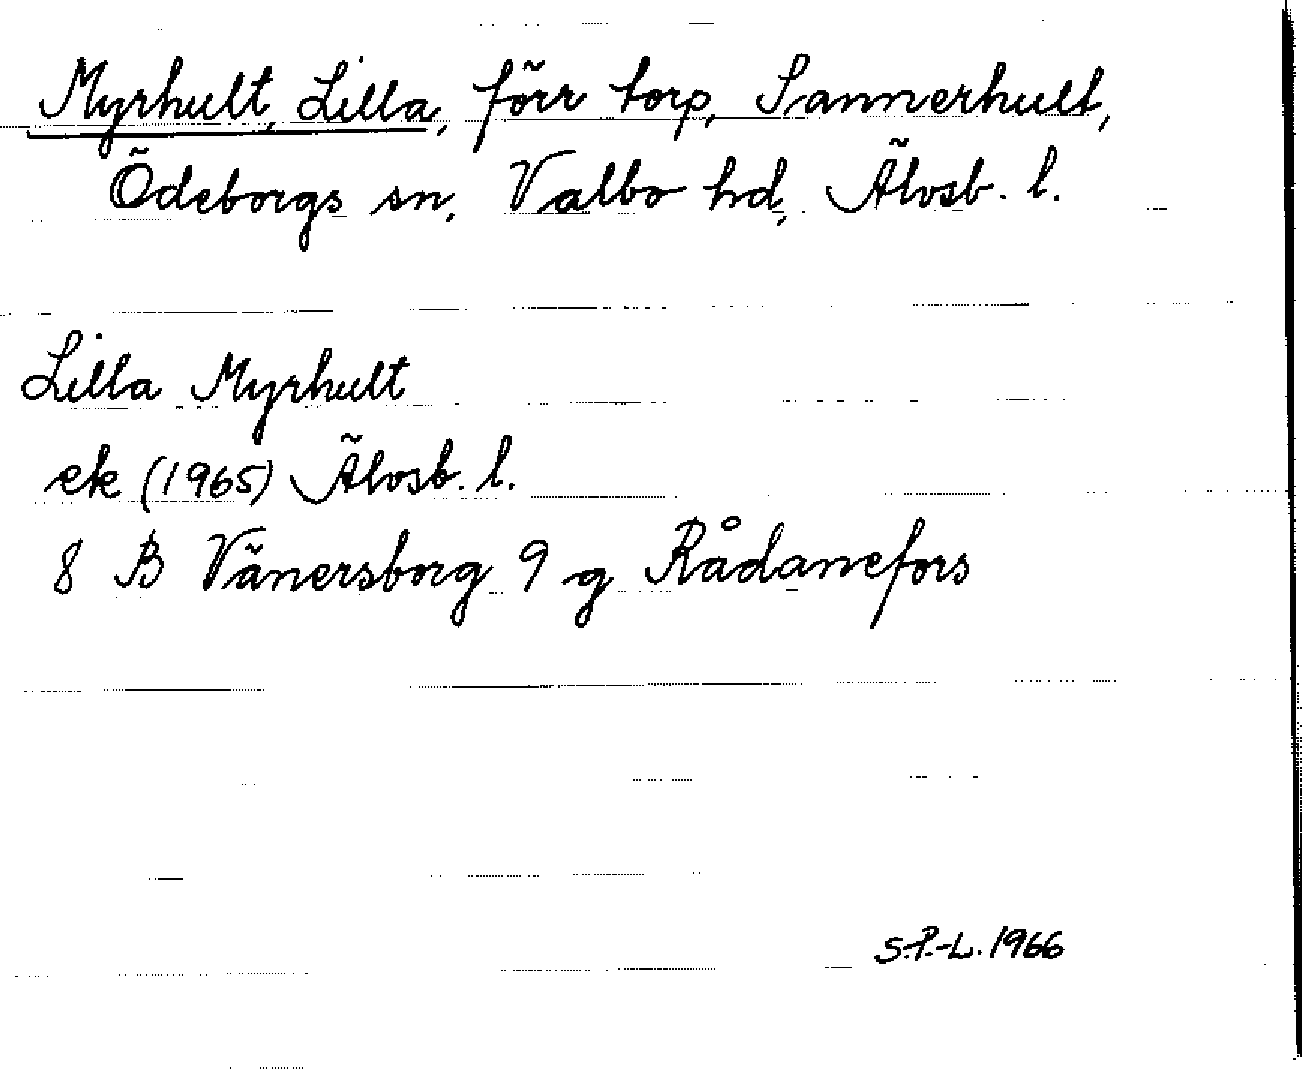 Myrhult, Lilla, förr torp, Sannerhult,
Ödeborgs sn, Valbo hd, Älvsb. l.
Lilla Myrhult
ek (1965) Älvsb. l.
8 B Vänersborg 9 g Rådanefors
S.P.-L. 1966